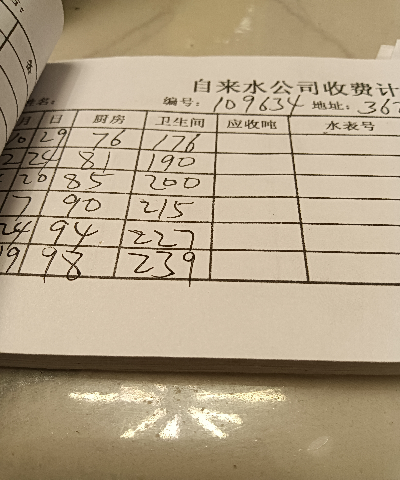 自来水公司收费计
姓名: 编号: 109634 地址: 362
月 日 厨房 卫生间 应收吨 水表号
10 29 76 176
2 24 81 190
20 85 200
7 90 215
24 94 227
19 98 239